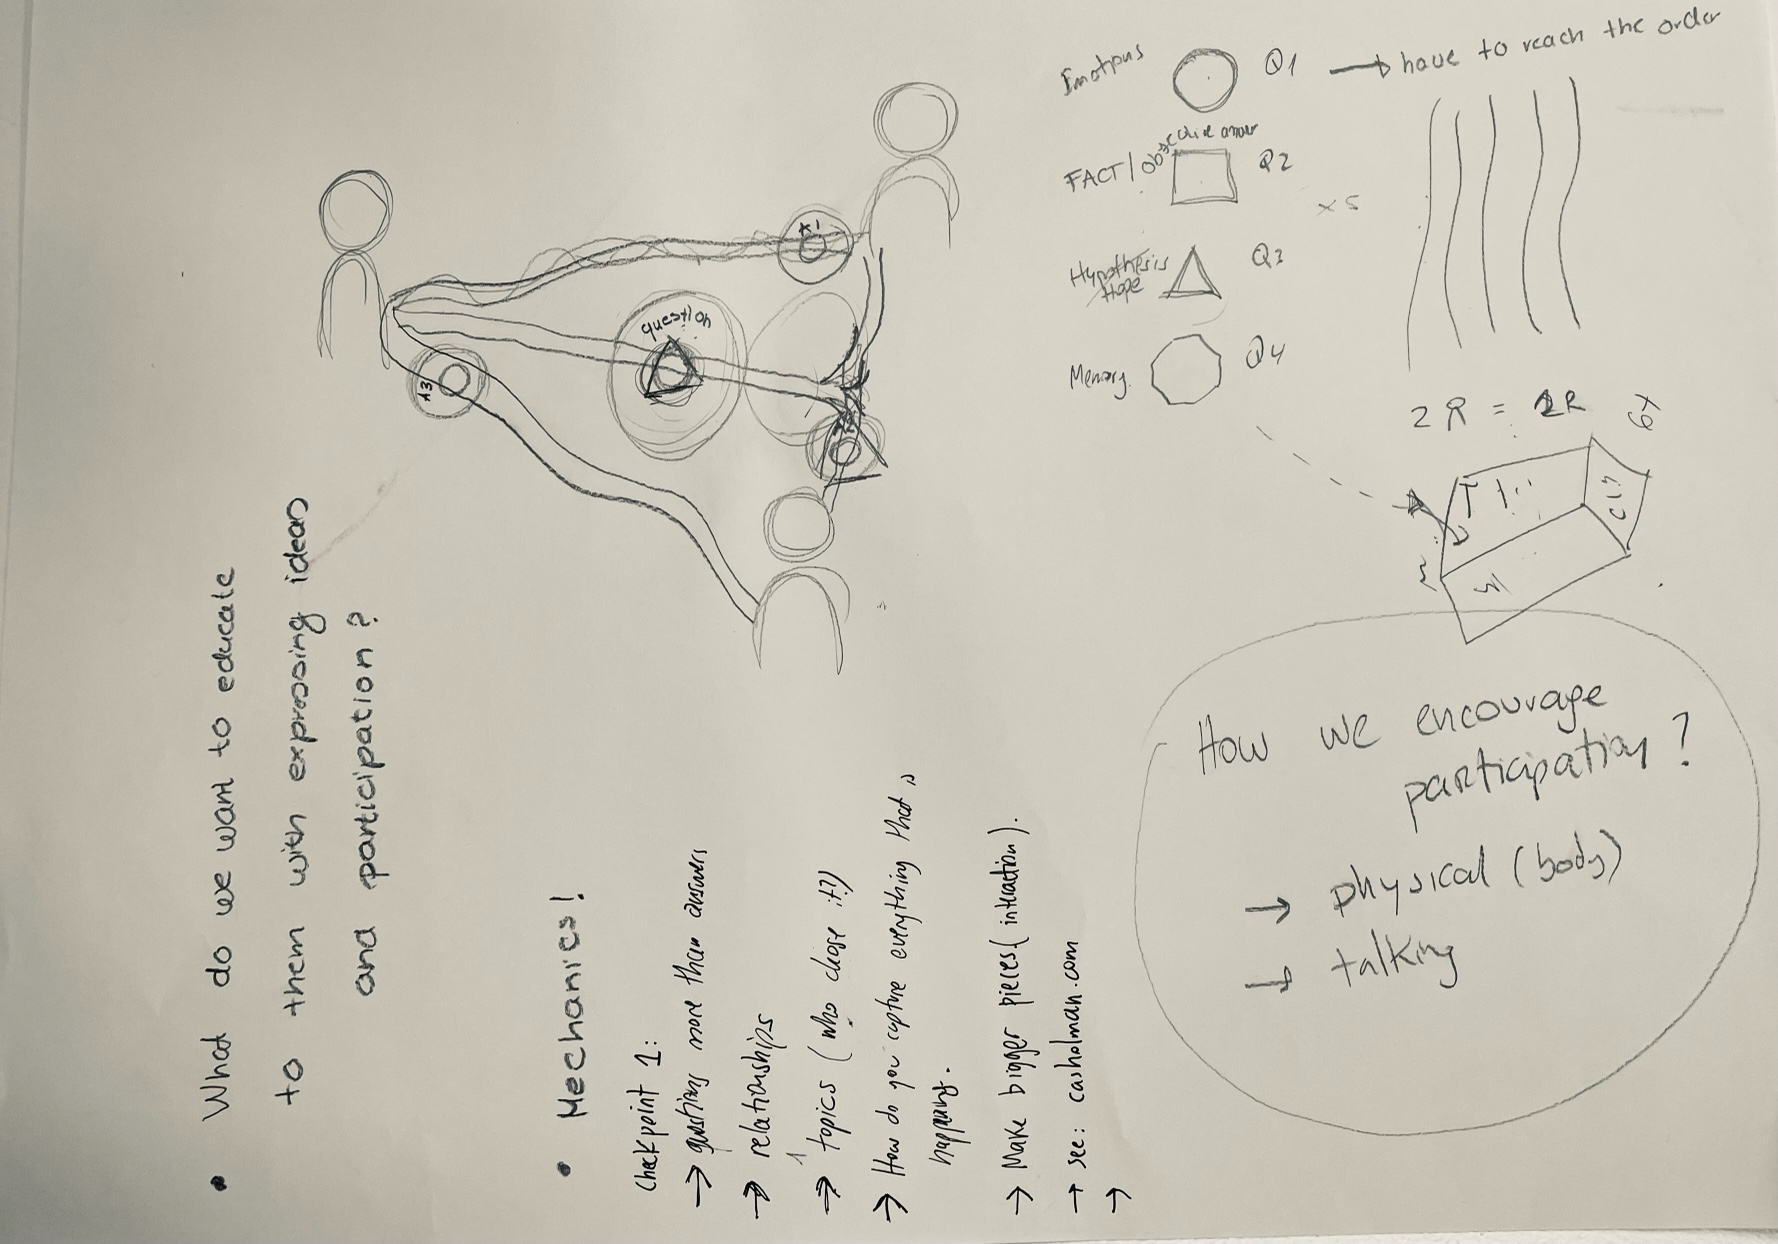 • What do we want to educate
to them with expressing ideas
and participation?
• Mechanics!
Checkpoint 1:
→ questions more than answers
→ relationships
→ topics (who chose it?)
→ How do you capture everything that is
happening.
→ Make bigger pieces (interaction).
→ see: casholman.com
→
question
A1
A3
Emotions Q1 → have to reach the order
FACT / Objective answer Q2
x5
Hypothesis Q3
Hope
Memory. Q4
2R = 2R
6x
How we encourage
participation?
→ physical (body)
→ talking